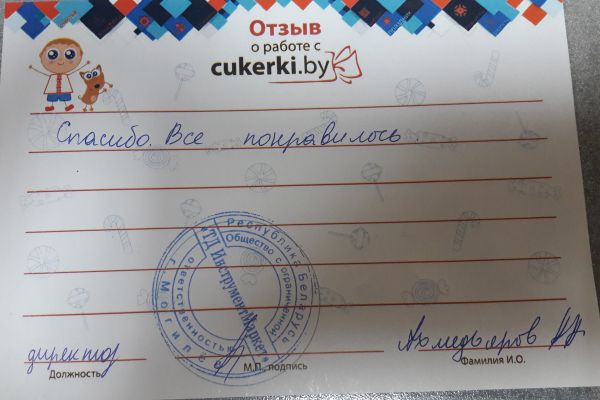 Отзыв
о работе с
cukerki.by
Спасибо. Все понравилось.
Республика Беларусь
Общество с ограниченной
ответственностью
«ТД ИнструментМаркет»
г. Могилев
директор
Должность
М.П. подпись
Фамилия И.О.